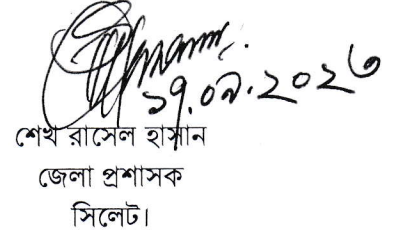 ১৭.০৯.২০২৩
শেখ রাসেল হাসান
জেলা প্রশাসক
সিলেট।